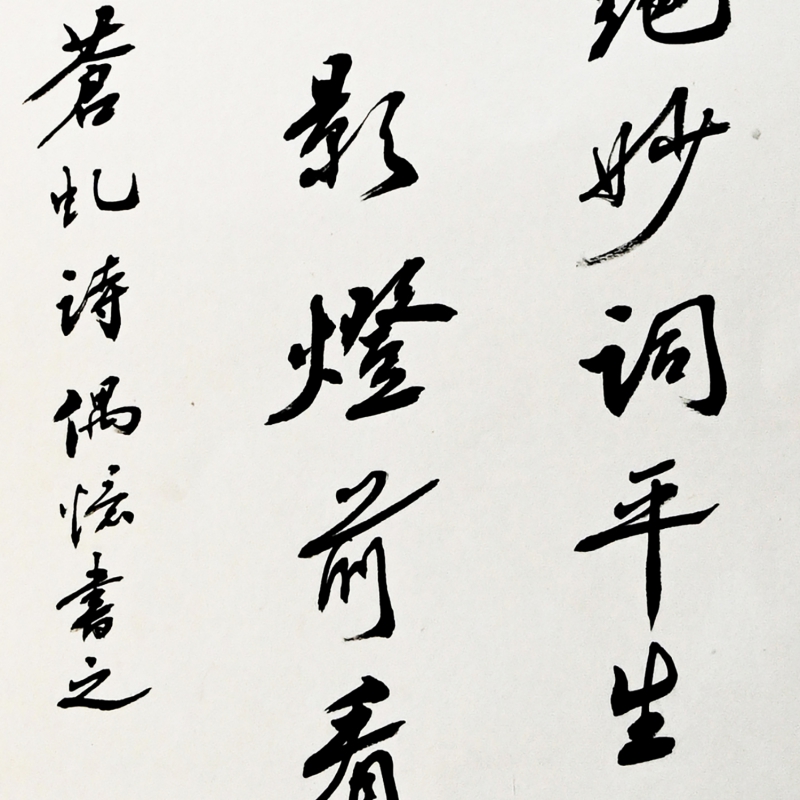 絕妙詞平生
影燈前看
蒼虬詩偶憶書之